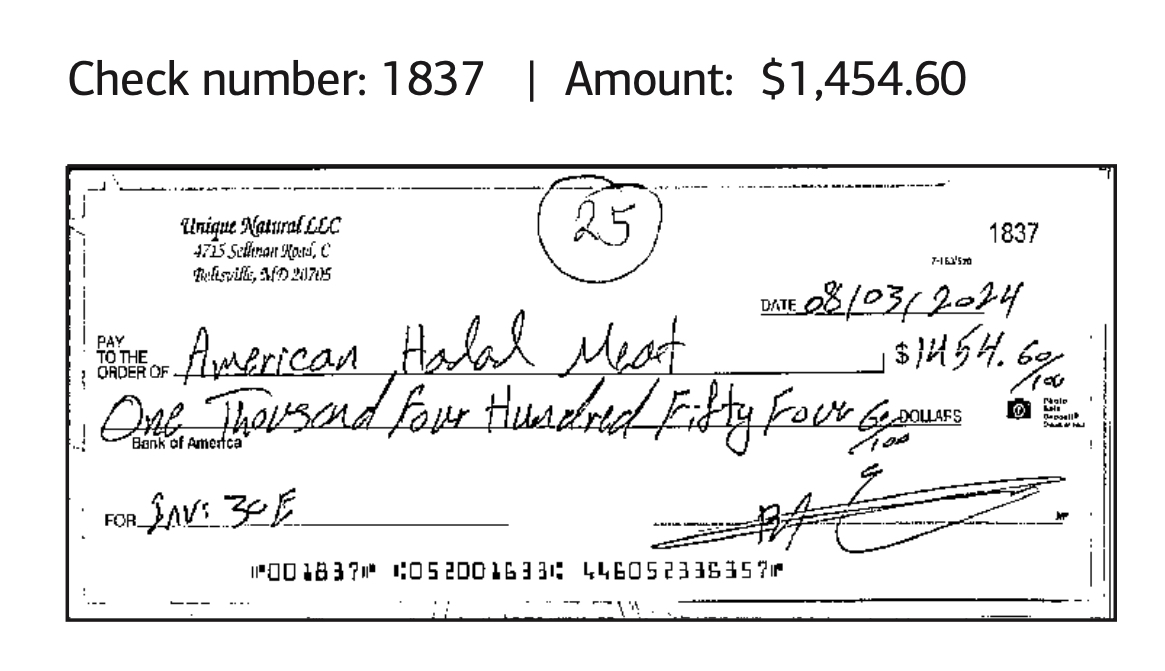 Check number: 1837 | Amount: $1,454.60
25
Unique Natural LLC
4715 Sellman Road, C
Beltsville, MD 20705
1837
7-163/520
DATE 08/03/2024
PAY TO THE ORDER OF American Halal Meat $1454.60/100
One Thousand Four Hundred Fifty Four 60/100 DOLLARS
Photo
Safe
Deposit®
Bank of America
FOR INV: 30E
MP
⑈001837⑈ ⑆052001633⑆ 446052336357⑈